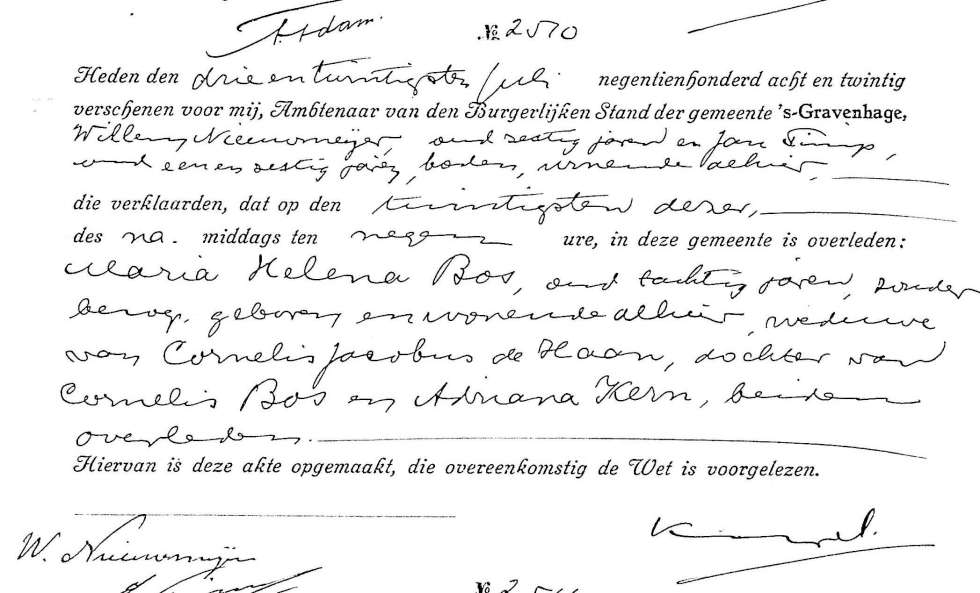 A'dam.
№ 2570
Heden den drie en twintigsten Juli negentienhonderd acht en twintig
verschenen voor mij, Ambtenaar van den Burgerlijken Stand der gemeente 's-Gravenhage,
Willem Nieuwmeijer, oud zestig jaren en Jan
oud een en zestig jaren, boden, wonende alhier,
die verklaarden, dat op den twintigsten dezer,
des na. middags ten negen ure, in deze gemeente is overleden:
Maria Helena Bos, oud tachtig jaren, zonder
beroep, geboren en wonende alhier, weduwe
van Cornelis Jacobus de Haan, dochter van
Cornelis Bos en Adriana Kern, beiden
overleden.
Hiervan is deze akte opgemaakt, die overeenkomstig de Wet is voorgelezen.
W. Nieuwmeijer
№